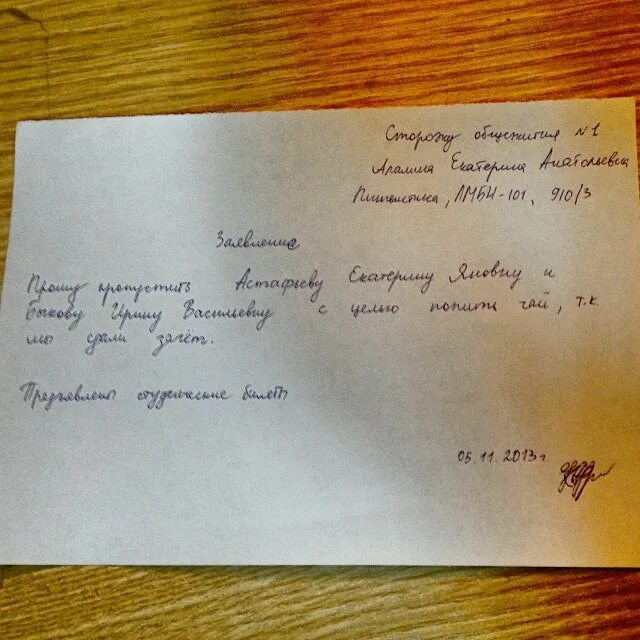 Сторожу общежития №1
Апалина Екатерина Анатольевна
Лингвистика, ЛМБИ-101, 910/3
Заявление
Прошу пропустить Астафьеву Екатерину Яновну и
Быкову Ирину Васильевну с целью попить чай, т.к
мы сдали зачёт.
Предъявлены студенческие билеты
05.11.2013г.